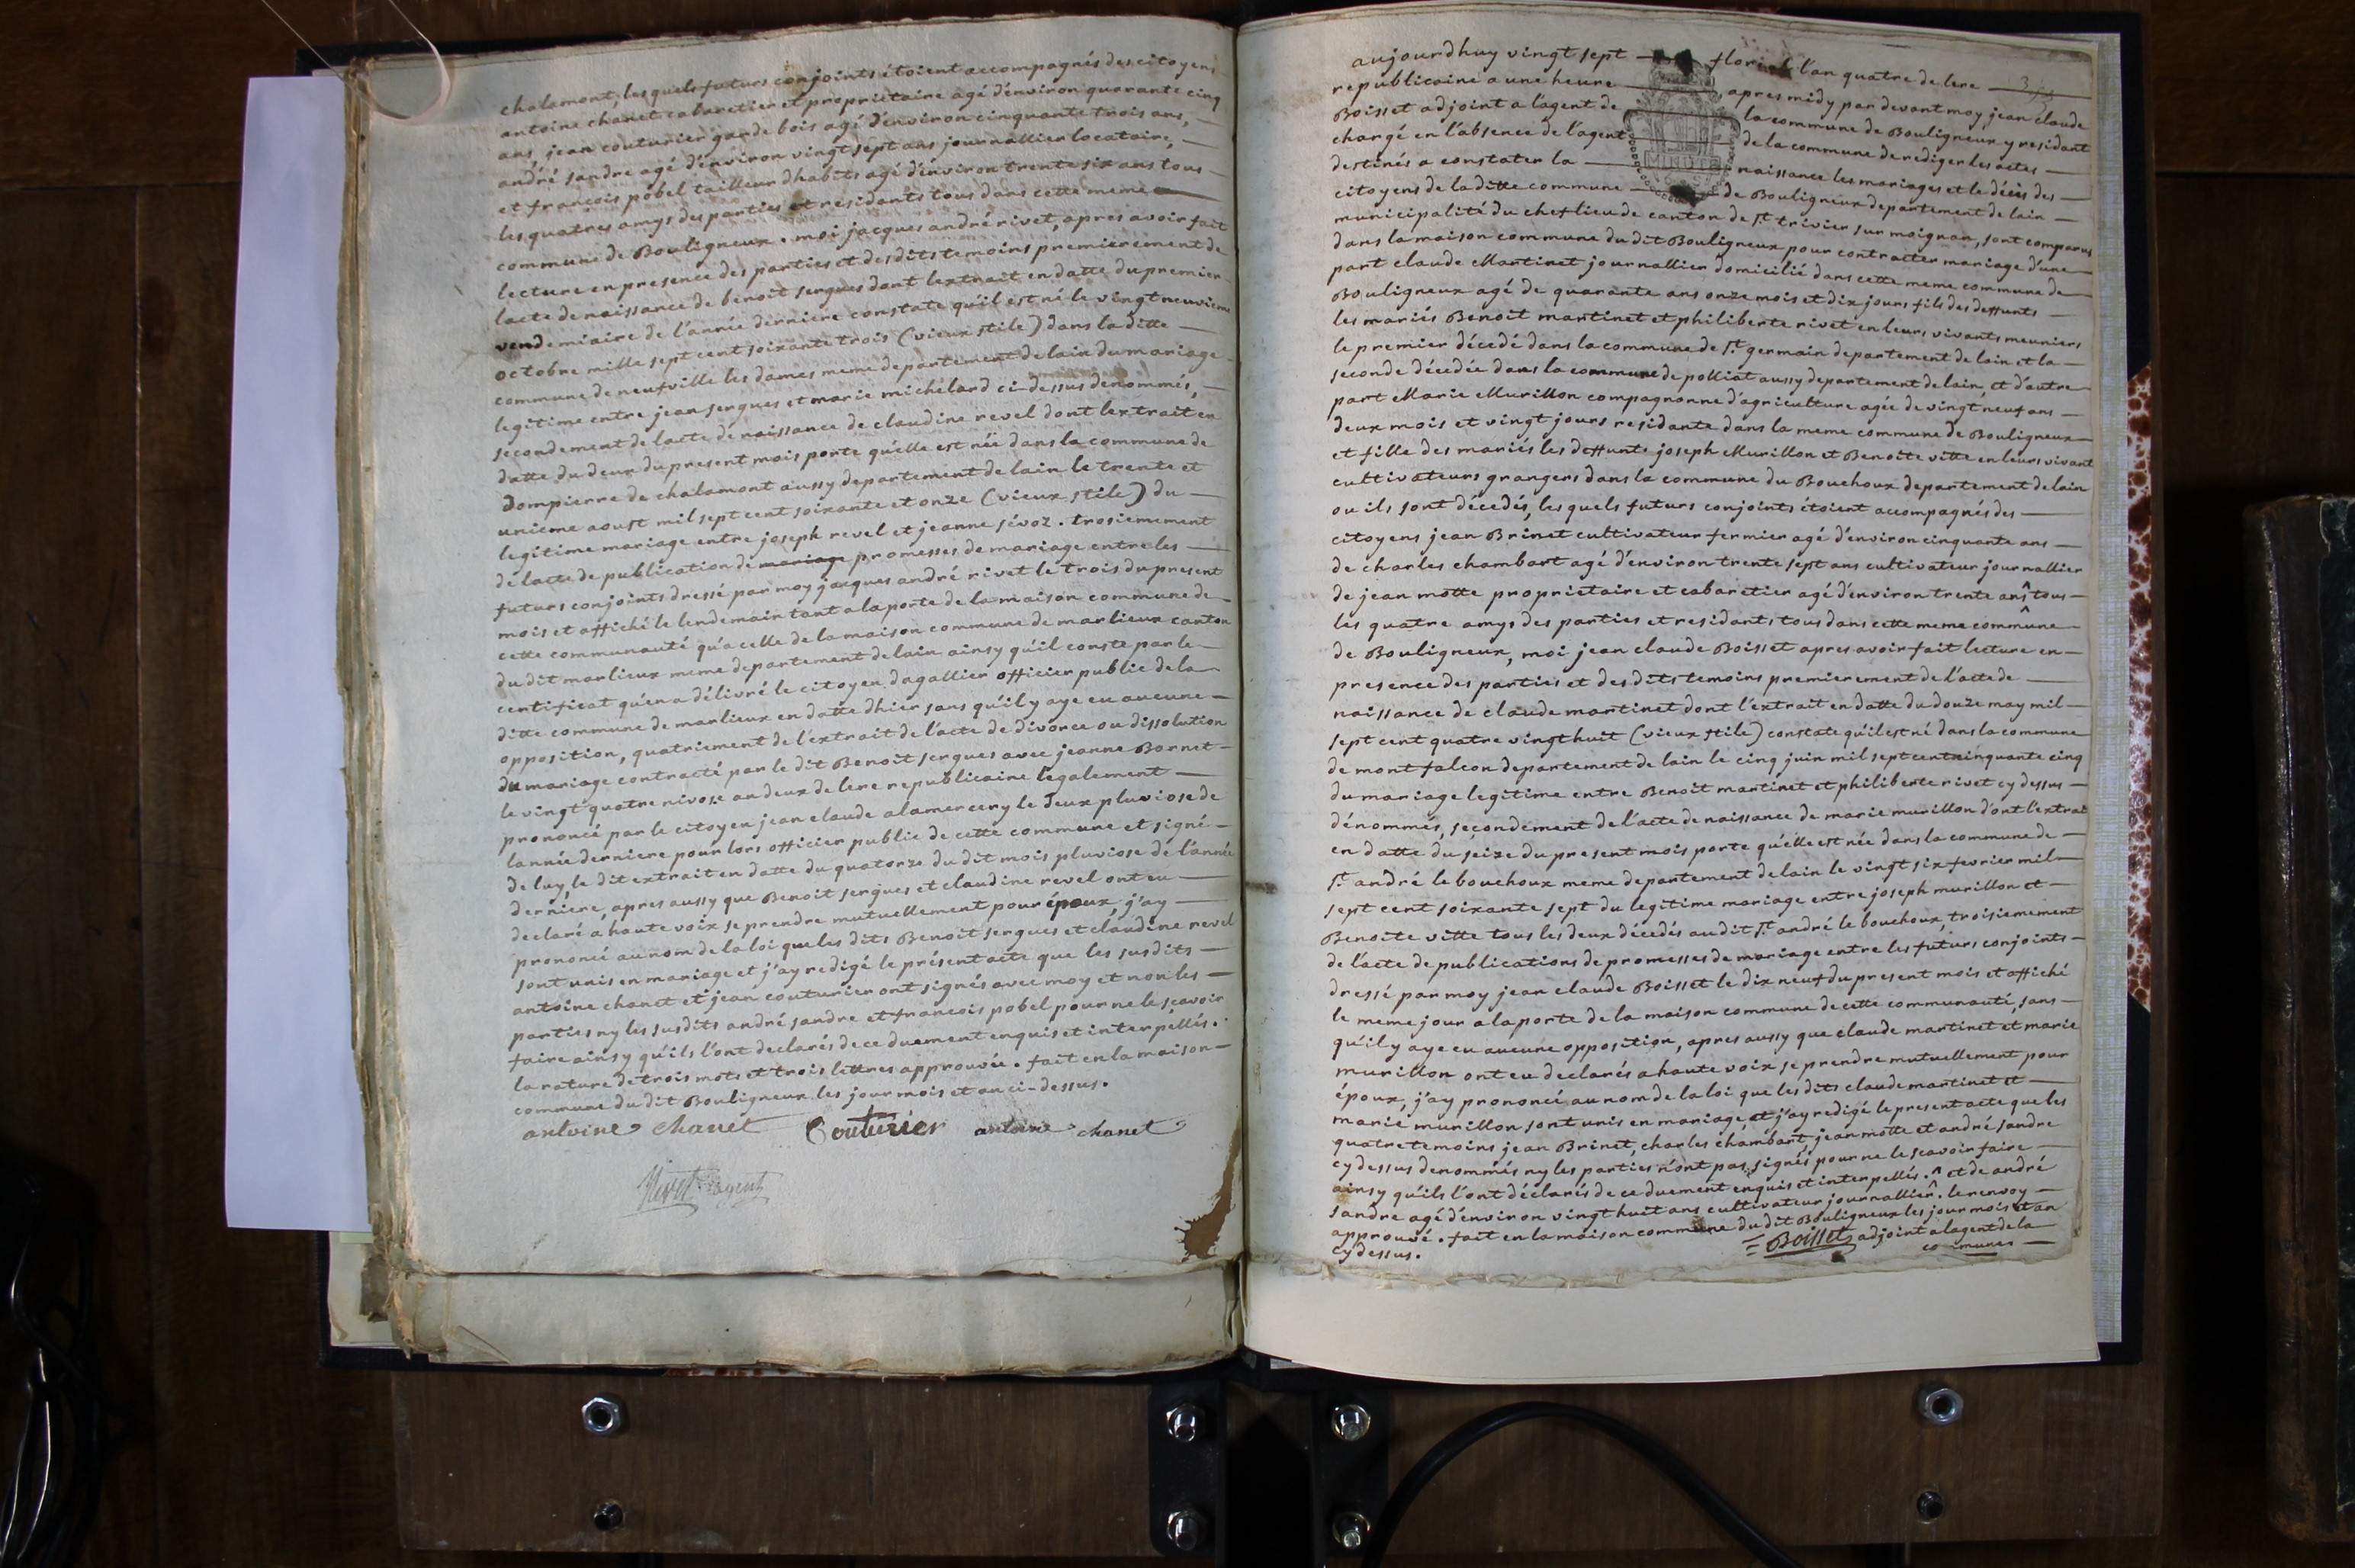 chalamont, les quels futurs conjoints étoient accompagnés des citoyens
antoine chanet cabaretier et propriétaire agé d'environ quarante cinq
ans, jean couturier garde bois agé d'environ cinquante trois ans,
andré sandre agé d'environ vingt sept ans journallier locataire,
et francois pobel tailleur dhabits agé d'environ trente six ans tous
les quatres amys des parties et résidants tous dans cette meme
commune de Bouligneux. moi jacques andré rivet, apres avoir fait
lecture en presence des parties et des dits temoins premièrement de
lacte de naissance de benoit sergues dont lextrait en datte du premier
vendemiaire de l'année dernière constate qu'il est né le vingt neuvieme
octobre mille sept cent soixante trois (vieux stile) dans la ditte
commune de neufville les dames meme departement de lain du mariage
legitime entre jean sergues et marie michelard ci-dessus dénommés,
secondement de lacte de naissance de claudine revel dont lextrait en
datte du deux du present mois porte qu'elle est née dans la commune de
dompierre de chalamont aussy departement de lain le trente et
unieme aoust mil sept cent soixante et onze (vieux stile) du
legitime mariage entre joseph revel et jeanne sévoz. trosiemement
de lacte de publication de mariage promesses de mariage entre les
futurs conjoints dressé par moy jacques andré rivet le trois du present
mois et affiché le lendemain tant a la porte de la maison commune de
cette communauté qu'a celle de la maison commune de marlieux canton
du dit marlieux meme departement de lain ainsy qu'il conste par le
certificat qu'en a délivré le citoyen dagallier officier public de la
ditte commune de marlieux en datte dhier sans qu'il y aye eu aucune
opposition, quatriement de l'extrait de l'acte de divorce ou dissolution
du mariage contracté par le dit Benoit sergues avec jeanne Bornet
le vingt quatre nivose an deux de lere republicaine legalement
prononcé par le citoyen jean claude alamercery le deux pluviose de
lannée derniere pour lors officier public de cette commune et signé
de luy, le dit extrait en datte du quatorze du dit mois pluviose de l'année
derniere, apres aussy que Benoit sergues et claudine revel ont eu
declaré a haute voix se prendre mutuellement pour époux, j'ay
prononcé au nom de la loi que les dits Benoit sergues et claudine revel
sont unis en mariage et j'ay redigé le présent acte que les susdits
antoine chanet et jean couturier ont signés avec moy et non les
parties ny les susdits andré sandre et francois pobel pour ne le scavoir
faire ainsy qu'ils l'ont declarés de ce duement enquis et interpellés.
la rature de trois mots et trois lettres approuvée. fait en la maison
commune du dit Bouligneux les jour mois et an ci-dessus.
antoine chanet Couturier antoine chanet
Rivet agent
aujourdhuy vingt sept floréal l'an quatre de lere
republicaine a une heure apres midy par devant moy jean claude
Boisset adjoint a l'agent de la commune de Bouligneux y residant
chargé en l'absence de l'agent de la commune de rediger les actes
destinés a constater la naissance les mariages et le décès des
citoyens de la ditte commune de Bouligneux departement de lain
MINUTE
municipalité du chef lieu de canton de St trivier sur moignan, sont comparus
dans la maison commune du dit Bouligneux pour contracter mariage d'une
part claude Martinet journallier domicilié dans cette meme commune de
Bouligneux agé de quarante ans onze mois et dix jours fils des deffunts
les mariés Benoit martinet et philiberte rivet en leurs vivants meuniers
le premier décedé dans la commune de St germain departement de lain et la
seconde décedée dans la commune de polliat aussy departement de lain, et d'autre
part Marie Murillon compagnonne d'agriculture agée de vingt neuf ans
deux mois et vingt jours residante dans la meme commune de Bouligneux
et fille des mariés les deffunts joseph Murillon et Benoite vitte en leurs vivant
cultivateurs grangers dans la commune du Bouchoux departement de lain
ou ils sont décedés, les quels futurs conjoints étoient accompagnés des
citoyens jean Brinet cultivateur fermier agé d'environ cinquante ans
de charles chambart agé d'environ trente sept ans cultivateur journallier
de jean motte propriétaire et cabaretier agé d'environ trente ans^ tous
les quatre amys des parties et residants tous dans cette meme commûne
de Bouligneux, moi jean claude Boisset apres avoir fait lecture en
presence des parties et des dits temoins premierement de l'acte de
naissance de claude martinet dont l'extrait en datte du douze may mil
sept cent quatre vingt huit (vieux stile) constate qu'il est né dans la commune
de montfalcon departement de lain le cinq juin mil sept cent cinquante cinq
du mariage legitime entre Benoit martinet et philiberte rivet cy dessus
dénommés, secondement de l'acte de naissance de marie murillon d'ont l'extrai
en datte du seize du present mois porte qu'elle est née dans la commune de
St andré le bouchoux meme departement de lain le vingt six fevrier mil
sept cent soixante sept du legitime mariage entre joseph murillon et
Benoite vitte tous les deux décedés audit St andré le bouchoux, troisiemement
de l'acte de publications de promesses de mariage entre les futurs conjoints
dressé par moy jean claude Boisset le dix neuf du present mois et affiché
le meme jour a la porte de la maison commune de cette communauté, sans
qu'il y aye eu aucune opposition, apres aussy que claude martinet et marie
murillon ont eu declarés a haute voix se prendre mutuellement pour
époux, j'ay prononcé au nom de la loi que les dits claude martinet et
marié murillon sont unis en mariage, et j'ay redigé le present acte que les
quatre temoins jean Brinet, charles chambart, jean motte et andré sandre
cy dessus denommés ny les parties n'ont pas signés pour ne le scavoir faire
ainsy qu'ils l'ont déclarés de ce duement enquis et interpellés. ^ et de andré
sandre agé d'environ vingt huit ans cultivateur journallier^. le renvoy
approuvé. fait en la maison commune du dit Bouligneux les jour mois et an
cy dessus. Boisset adjoint a lagent de la
communes